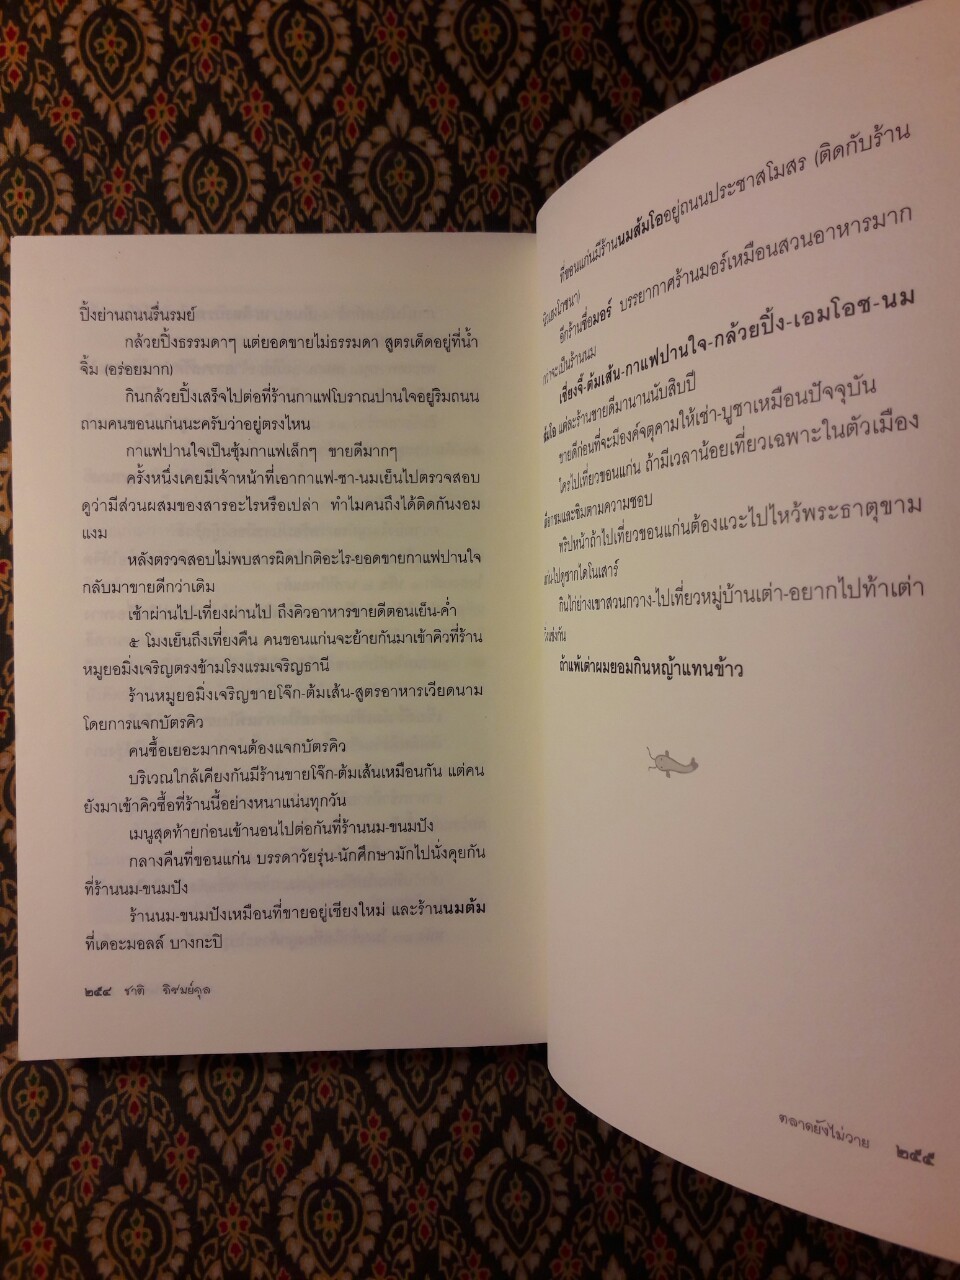 ปิ้งย่านถนนรื่นรมย์
กล้วยปิ้งธรรมดาๆ แต่ยอดขายไม่ธรรมดา สูตรเด็ดอยู่ที่น้ำ
จิ้ม (อร่อยมาก)
กินกล้วยปิ้งเสร็จไปต่อที่ร้านกาแฟโบราณปานใจอยู่ริมถนน
ถามคนขอนแก่นนะครับว่าอยู่ตรงไหน
กาแฟปานใจเป็นซุ้มกาแฟเล็กๆ ขายดีมากๆ
ครั้งหนึ่งเคยมีเจ้าหน้าที่เอากาแฟ-ชา-นมเย็นไปตรวจสอบ
ดูว่ามีส่วนผสมของสารอะไรหรือเปล่า ทำไมคนถึงได้ติดกันงอม
แงม
หลังตรวจสอบไม่พบสารผิดปกติอะไร-ยอดขายกาแฟปานใจ
กลับมาขายดีกว่าเดิม
เช้าผ่านไป-เที่ยงผ่านไป ถึงคิวอาหารขายดีตอนเย็น-ค่ำ
๕ โมงเย็นถึงเที่ยงคืน คนขอนแก่นจะย้ายกันมาเข้าคิวที่ร้าน
หมูยอมิ่งเจริญตรงข้ามโรงแรมเจริญธานี
ร้านหมูยอมิ่งเจริญขายโจ๊ก-ต้มเส้น-สูตรอาหารเวียดนาม
โดยการแจกบัตรคิว
คนซื้อเยอะมากจนต้องแจกบัตรคิว
บริเวณใกล้เคียงกันมีร้านขายโจ๊ก-ต้มเส้นเหมือนกัน แต่คน
ยังมาเข้าคิวซื้อที่ร้านนี้อย่างหนาแน่นทุกวัน
เมนูสุดท้ายก่อนเข้านอนไปต่อกันที่ร้านนม-ขนมปัง
กลางคืนที่ขอนแก่น บรรดาวัยรุ่น-นักศึกษามักไปนั่งคุยกัน
ที่ร้านนม-ขนมปัง
ร้านนม-ขนมปังเหมือนที่ขายอยู่เชียงใหม่ และร้านนมต้ม
ที่เดอะมอลล์ บางกะปิ
๒๕๔ ชาติ ภิรมย์กุล
ที่ขอนแก่นมีร้านนมส้มโออยู่ถนนประชาสโมสร (ติดกับร้าน
อีกร้านชื่อมอร์ บรรยากาศร้านมอร์เหมือนสวนอาหารมาก
กว่าจะเป็นร้านนม
เชี่ยงจี้-ต้มเส้น-กาแฟปานใจ-กล้วยปิ้ง-เอมโอช-นม
แต่ละร้านขายดีมานานนับสิบปี
ขายดีก่อนที่จะมีองค์จตุคามให้เช่า-บูชาเหมือนปัจจุบัน
ใครไปเที่ยวขอนแก่น ถ้ามีเวลาน้อยเที่ยวเฉพาะในตัวเมือง
และชิมตามความชอบ
ทริปหน้าถ้าไปเที่ยวขอนแก่นต้องแวะไปไหว้พระธาตุขาม
ไปดูซากไดโนเสาร์
กินไก่ย่างเขาสวนกวาง-ไปเที่ยวหมู่บ้านเต่า-อยากไปท้าเต่า
วิ่งแข่งกัน
ถ้าแพ้เต่าผมยอมกินหญ้าแทนข้าว
ตลาดยังไม่วาย ๒๕๕